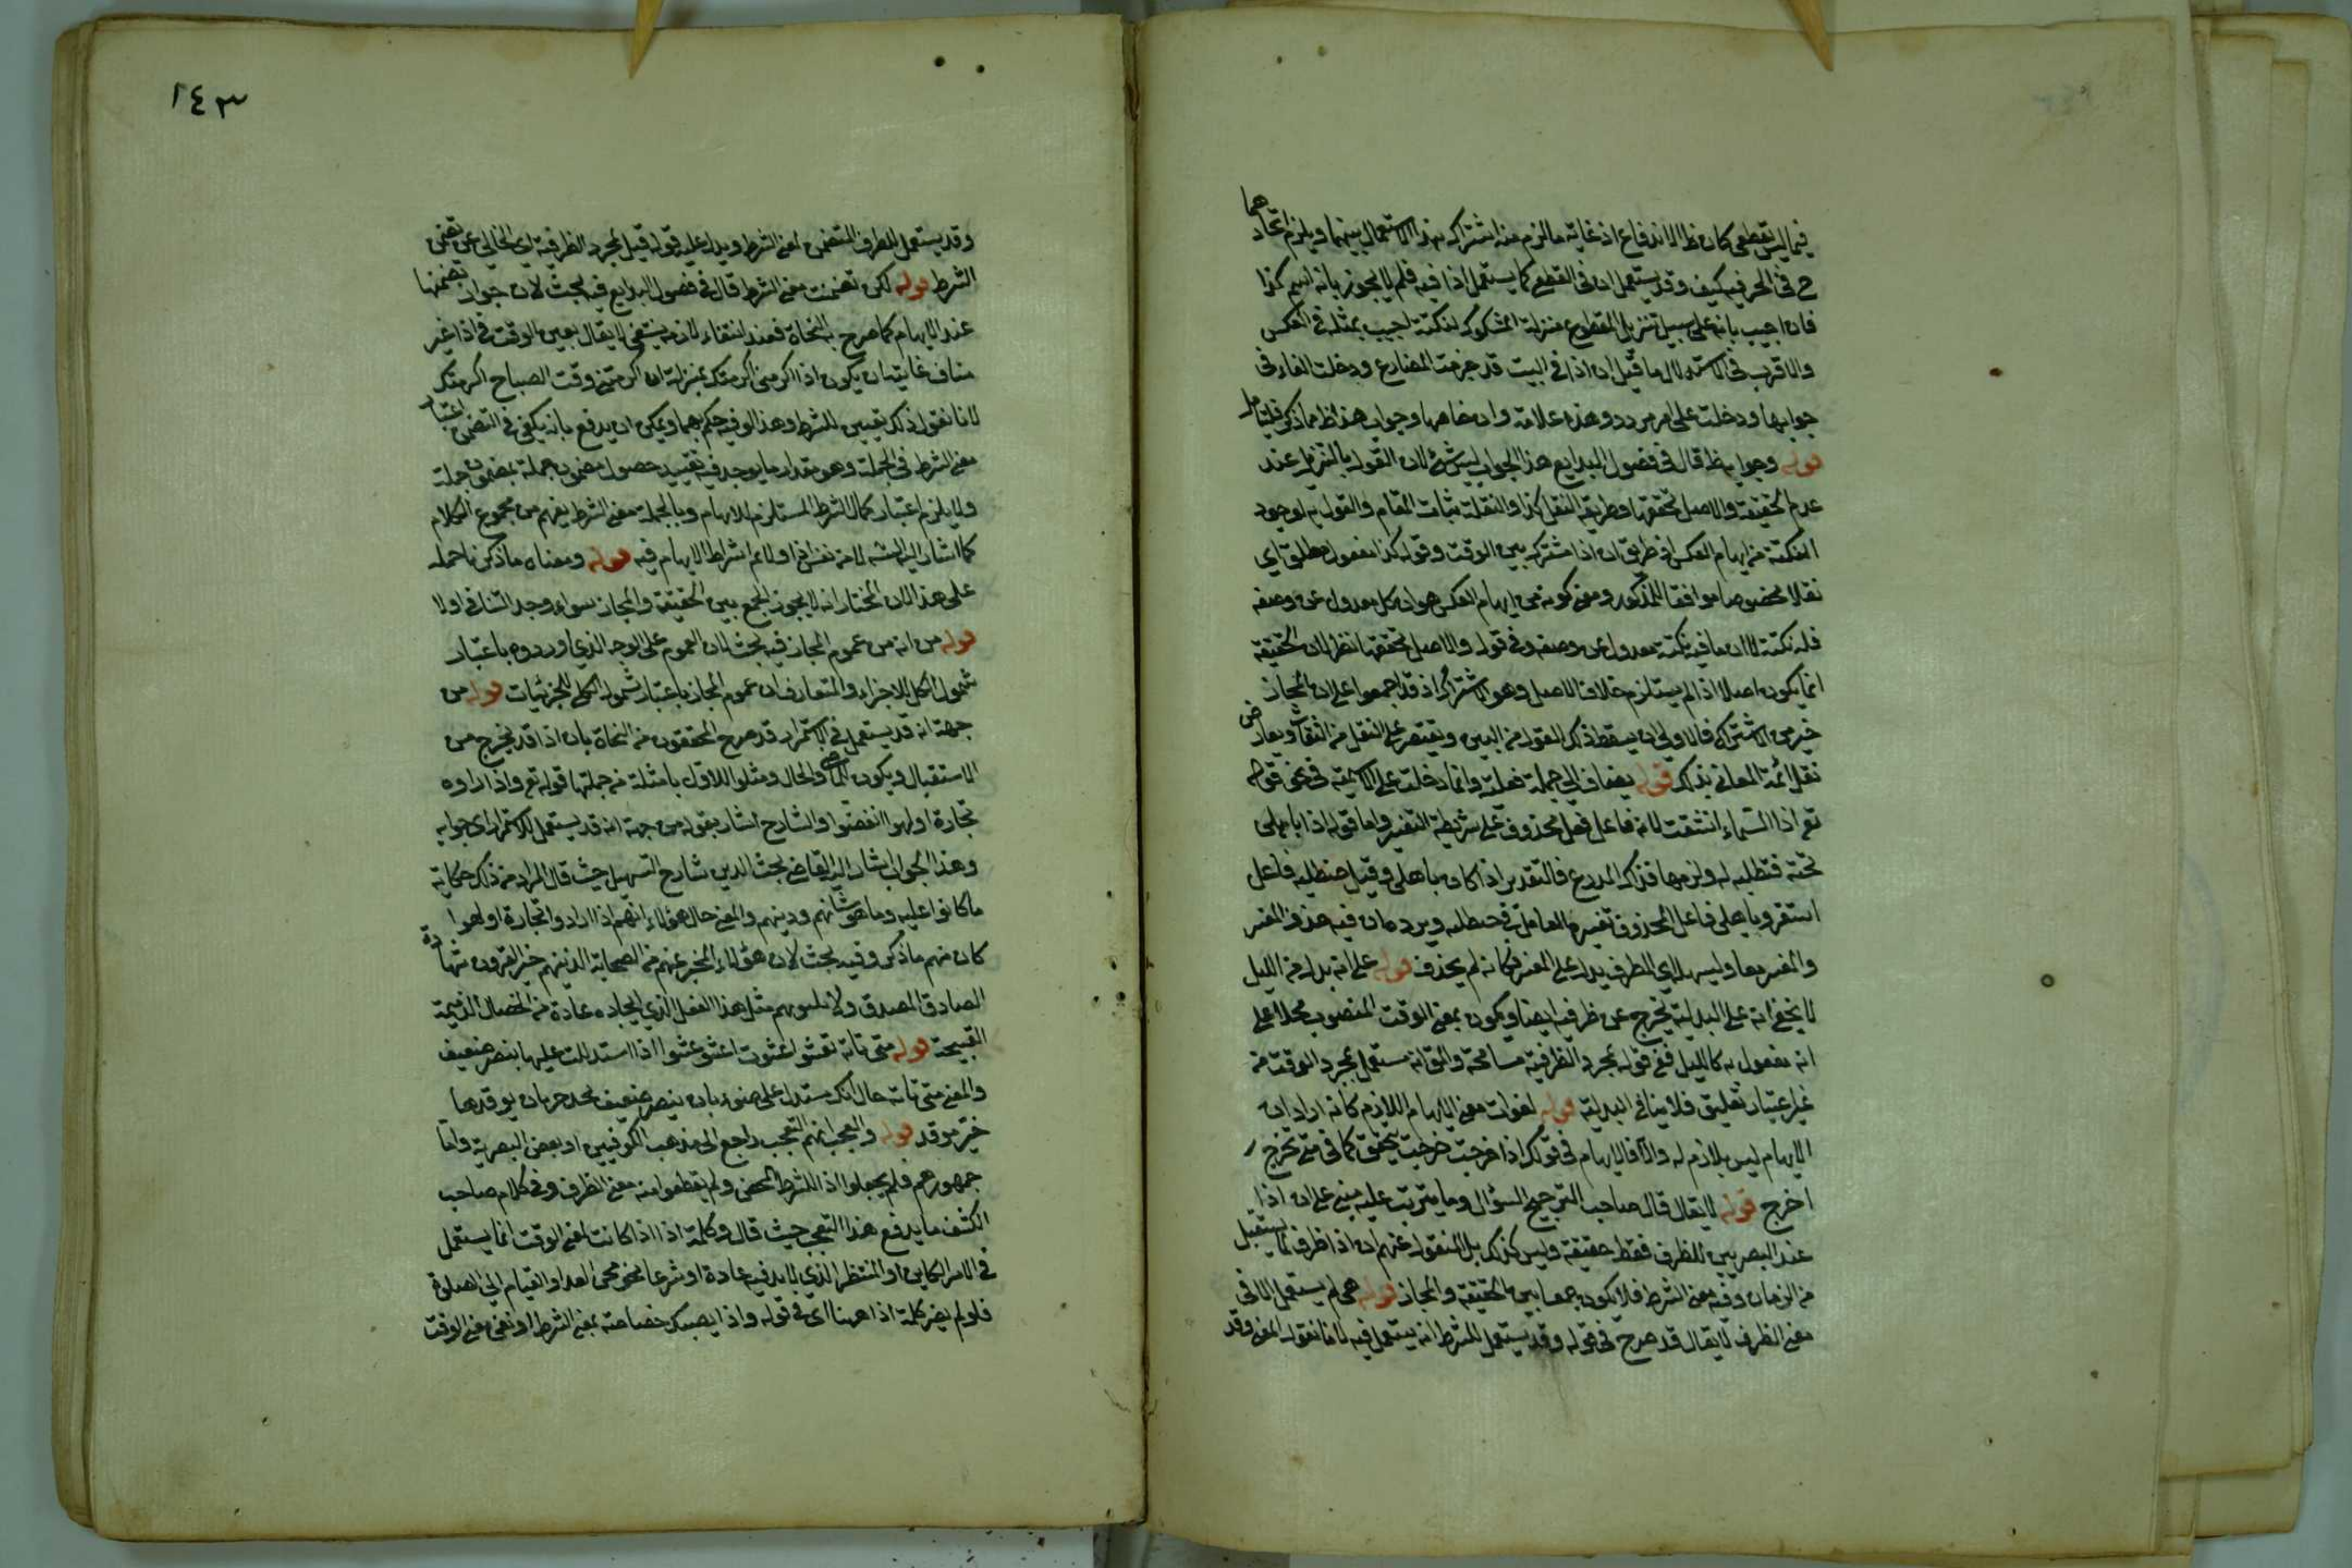 فيما ليس بقطعي كان ظ الاندفاع اذ غاية ما لزم منه اشتراك هذا الاستعمال بينهما ويلزم اتحادهما
ح في الحرفية كيف وقد يستعمل ان في القطع كما يستعمل اذا فيه فلم لا يجوز بانه اسم كذا
فان اجيب بانه على سبيل تنزيل المقطوع منزلة المشكوك لنكتة اجيب بمثله في العكس
والاقرب في الاستدلال ما قيل ان اذا في البيت قد جزمت المضارع ودخلت الفاء في
جوابها ودخلت على امر مردد وهذه علامة وان خاصها وجواب هذا ظ مما ذكر فليتامل
قوله وجوابه ظ قال في فصول البدايع هذا الجواب ليس بشئ لان القول بالتنزيل عند
عدم الحقيقة والاصل تحققها وطريقه النقل كذا والنقلة ثبات المقام والقول به لوجود
النكتة من ايهام العكس في طريق ان اذا مشترك بين الوقت وقوله كذا مفعول مطلق اي
نقلا مخصوصا موافقا للمذكور ومعنى كونه من ايهام العكس هو ان كل معدول عن وصفه
فله نكتة لا ان ما فيه نكتة معدول عن وصفه وفي قوله والاصل تحققها نظر لان الحقيقة
انما يكون اصلا اذا لم يستلزم خلاف الاصل وهو الاشتراك اذ قد اجمعوا على ان المجاز
خير من الاشتراك فالاولى ان يسقط ذلك القول من البين ويقتصر على النقل من الثقات ويعارض
نقل ائمة المعاني بذلك قوله يضاف الى جملة فعلية وانما دخلت على الاسمية في نحو قوله
تع اذا السماء انشقت لانه فاعل فعل محذوف على شريطة التفسير واما قوله اذا باهلي
تحته حنظلية له ولد منها فذاك المذرع فالتقدير اذا كان باهلي وقيل حنظلية فاعل
استقر وباهلي فاعل لمحذوف تفسيره العامل في حنظلية ويرده ان فيه حذف المفسر
والمفسر معا ويسهله ان الظرف يدل على المفسر فكانه لم يحذف قوله على انه بدل من الليل
لا يخفى انه على البدلية يخرج عن ظرفيته ايضا ويكون بمعنى الوقت المنصوب محلا على
انه مفعول به كالليل ففي قوله لمجرد الظرفية مسامحة والمق انه مستعمل لمجرد الوقت من
غير اعتبار تعليق فلا ينافي البدلية قوله لفوات معنى الابهام اللازم كانه اراد ان
الابهام ليس بلازم له والا فالابهام في قولك اذا خرجت خرجت يتحقق كما في متى تخرج
اخرج قوله لا يقال قال صاحب الترجيح السؤال وما يترتب عليه مبني على ان اذا
عند البصريين للظرف فقط حقيقة وليس كذلك بل المنقول عنهم ان اذا ظرف لما يستقبل
من الزمان وفيه معنى الشرط فلا يكون جمعا بين الحقيقة والمجاز قوله هي لم يستعمل الا في
معنى الظرف لا يقال قد صرح في قوله وقد يستعمل للشرط انه يستعمل فيه لانا نقول المعنى وقد
١٤٣
وقد يستعمل للظرف المتضمن لمعنى الشرط ويدل عليه قوله قبل لمجرد الظرفية اي الخالي عن تضمن
الشرط قوله لكن تضمنت معنى الشرط قال في فصول البدايع فيه بحث لان جواز تضمنها
عند الابهام كما صرح به النحاة فعند انتفاء لازمه ينتفي لا يقال تعين الوقت في اذا غير
مناف غايته ان يكون اذا اكرمتني اكرمتك بمنزلة ان اكرمتني وقت الصباح اكرمتك
لانا نقول ذلك تعيين للشرط وهذا لوقته حكم بهما ويمكن ان يدفع بانه يكفي في التضمن اعتبار
معنى الشرط في الجملة وهو مقدار ما يوجد فيه تقييد حصول مضمون جملة بمضمون جملة
ولا يلزم اعتبار كمال الشرط المستلزم للابهام وبالجملة معنى الشرط يفهم من مجموع الكلام
كما اشار اليه الشه لا من نفس اذا ولا تم اشراط الابهام فيه قوله ومعناه ما ذكرنا حمله
على هذا لان المختار انه لا يجوز الجمع بين الحقيقة والمجاز سواء وجد التنافي اولا
قوله من انه من عموم المجاز فيه بحث لان العموم على الوجه الذي اورده باعتبار
شمول الكل للاجزاء والمتعارف ان عموم المجاز باعتبار شمول الكلي للجزئيات قوله من
جهة انه قد يستعمل في الاستمرار قد صرح المحققون من النحاة بان اذا قد يخرج من
الاستقبال ويكون للماضي والحال ومثلوا للاول بامثلة من جملتها قوله تع واذا راوا
تجارة او لهوا انفضوا والشارح اشار بقوله من جهة انه قد يستعمل للاستمرار الى جوابه
وهذا الجواب اشار اليه القاضي محب الدين شارح التسهيل حيث قال المراد من ذلك حكاية
ما كانوا عليه وما هو شانهم ودينهم والمعنى حال هؤلاء انهم اذا رادوا تجارة او لهوا
كان منهم ما ذكر وفيه بحث لان هؤلاء المخبر عنهم من الصحابة الذينهم خير القرون بشهادة
الصادق المصدق ولا يليق بهم مثل هذا الفعل الذي ايجاده عادة من الخصال الذميمة
القبيحة قوله متى تاته تعشو عشوت اعشو عشوا اذا استدللت عليها ببصر ضعيف
والمعنى متى تاته حال انك مستدلا على ضوء ناره ببصر ضعيف تجد خير نار يوقدها
خير موقد قوله والعجب انهم التعجب راجع الى مذهب الكوفيين او بعض البصرية واما
جمهورهم فلم يجعلوا اذا للشرط المحض ولم يقطعوا منه معنى الظرف وفي كلام صاحب
الكشف ما يدفع هذا التعجب حيث قال وكلمة اذا اذا كانت لمعنى الوقت انما يستعمل
في الامر الكاين او المنتظر الذي لا بد فيه عادة او شرعا نحو مجئ الغد او القيام الى الصلوة
فلو لم يصر كلمة اذا ههنا اي في قوله واذا يصبك خصاصة بمعنى الشرط او نفي معنى الوقت